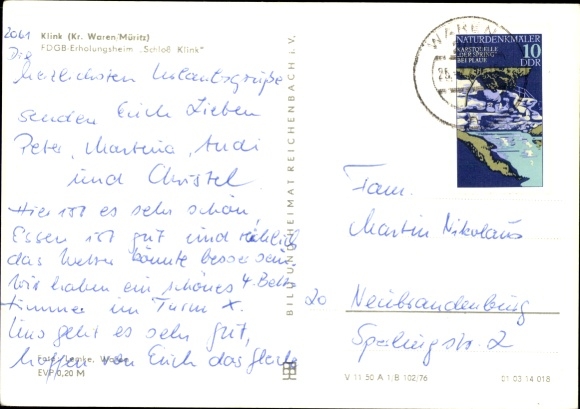 2061 Klink (Kr. Waren/Müritz)
FDGB-Erholungsheim „Schloß Klink"
Die
herzlichsten Urlaubsgrüße
senden Euch Lieben
Peter, Martina, Andi
und Christel.
Hier ist es sehr schön,
Essen ist gut und reichlich
das Wetter könnte besser sein
Wir haben ein schönes 4. Bett
zimmer im Turm X.
Uns geht es sehr gut,
hoffen von Euch das gleiche
Foto: Lemke, Waren
EVP 0,20 M
BILD UND HEIMAT REICHENBACH i. V.
WAREN
NATURDENKMÄLER
KARSTQUELLE
„DER SPRING"
BEI PLAUE
10
DDR
Fam.
Martin Nikolaus
20 Neubrandenburg
Sperlingstr. 2
V 11 50 A 1/B 102/76
01 03 14 018